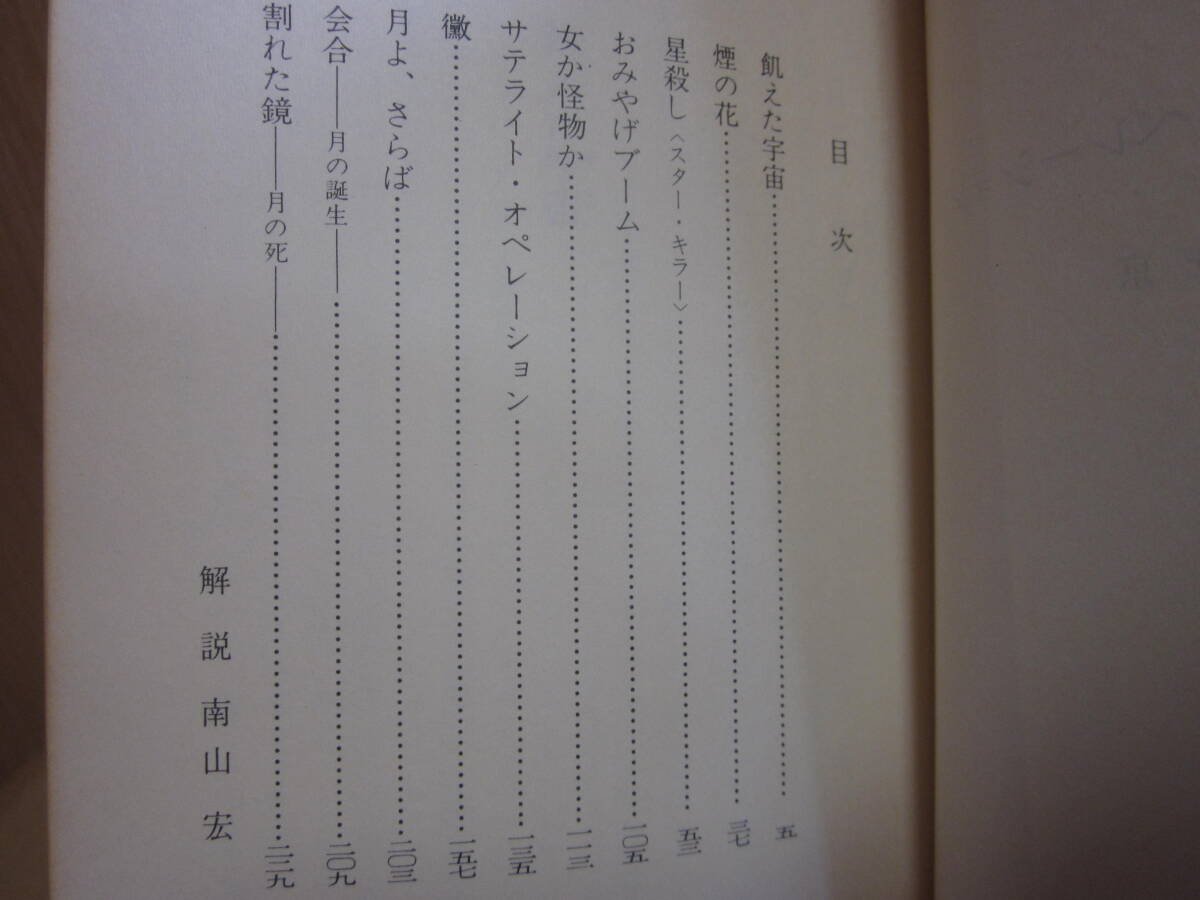 目次
飢えた宇宙……………………五
煙の花……………………三七
星殺し〈スター・キラー〉……………………五三
おみやげブーム……………………一〇五
女か怪物か……………………一一三
サテライト・オペレーション……………………一三五
黴……………………一五七
月よ、さらば……………………二〇三
会合――月の誕生――……………………二〇九
割れた鏡――月の死――……………………二二九
解説 南山宏